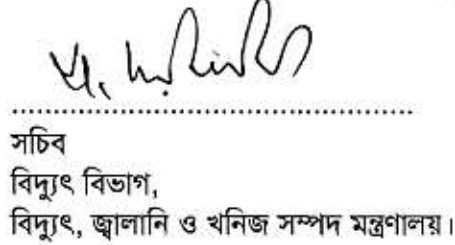 সচিব
বিদ্যুৎ বিভাগ,
বিদ্যুৎ, জ্বালানি ও খনিজ সম্পদ মন্ত্রণালয়।